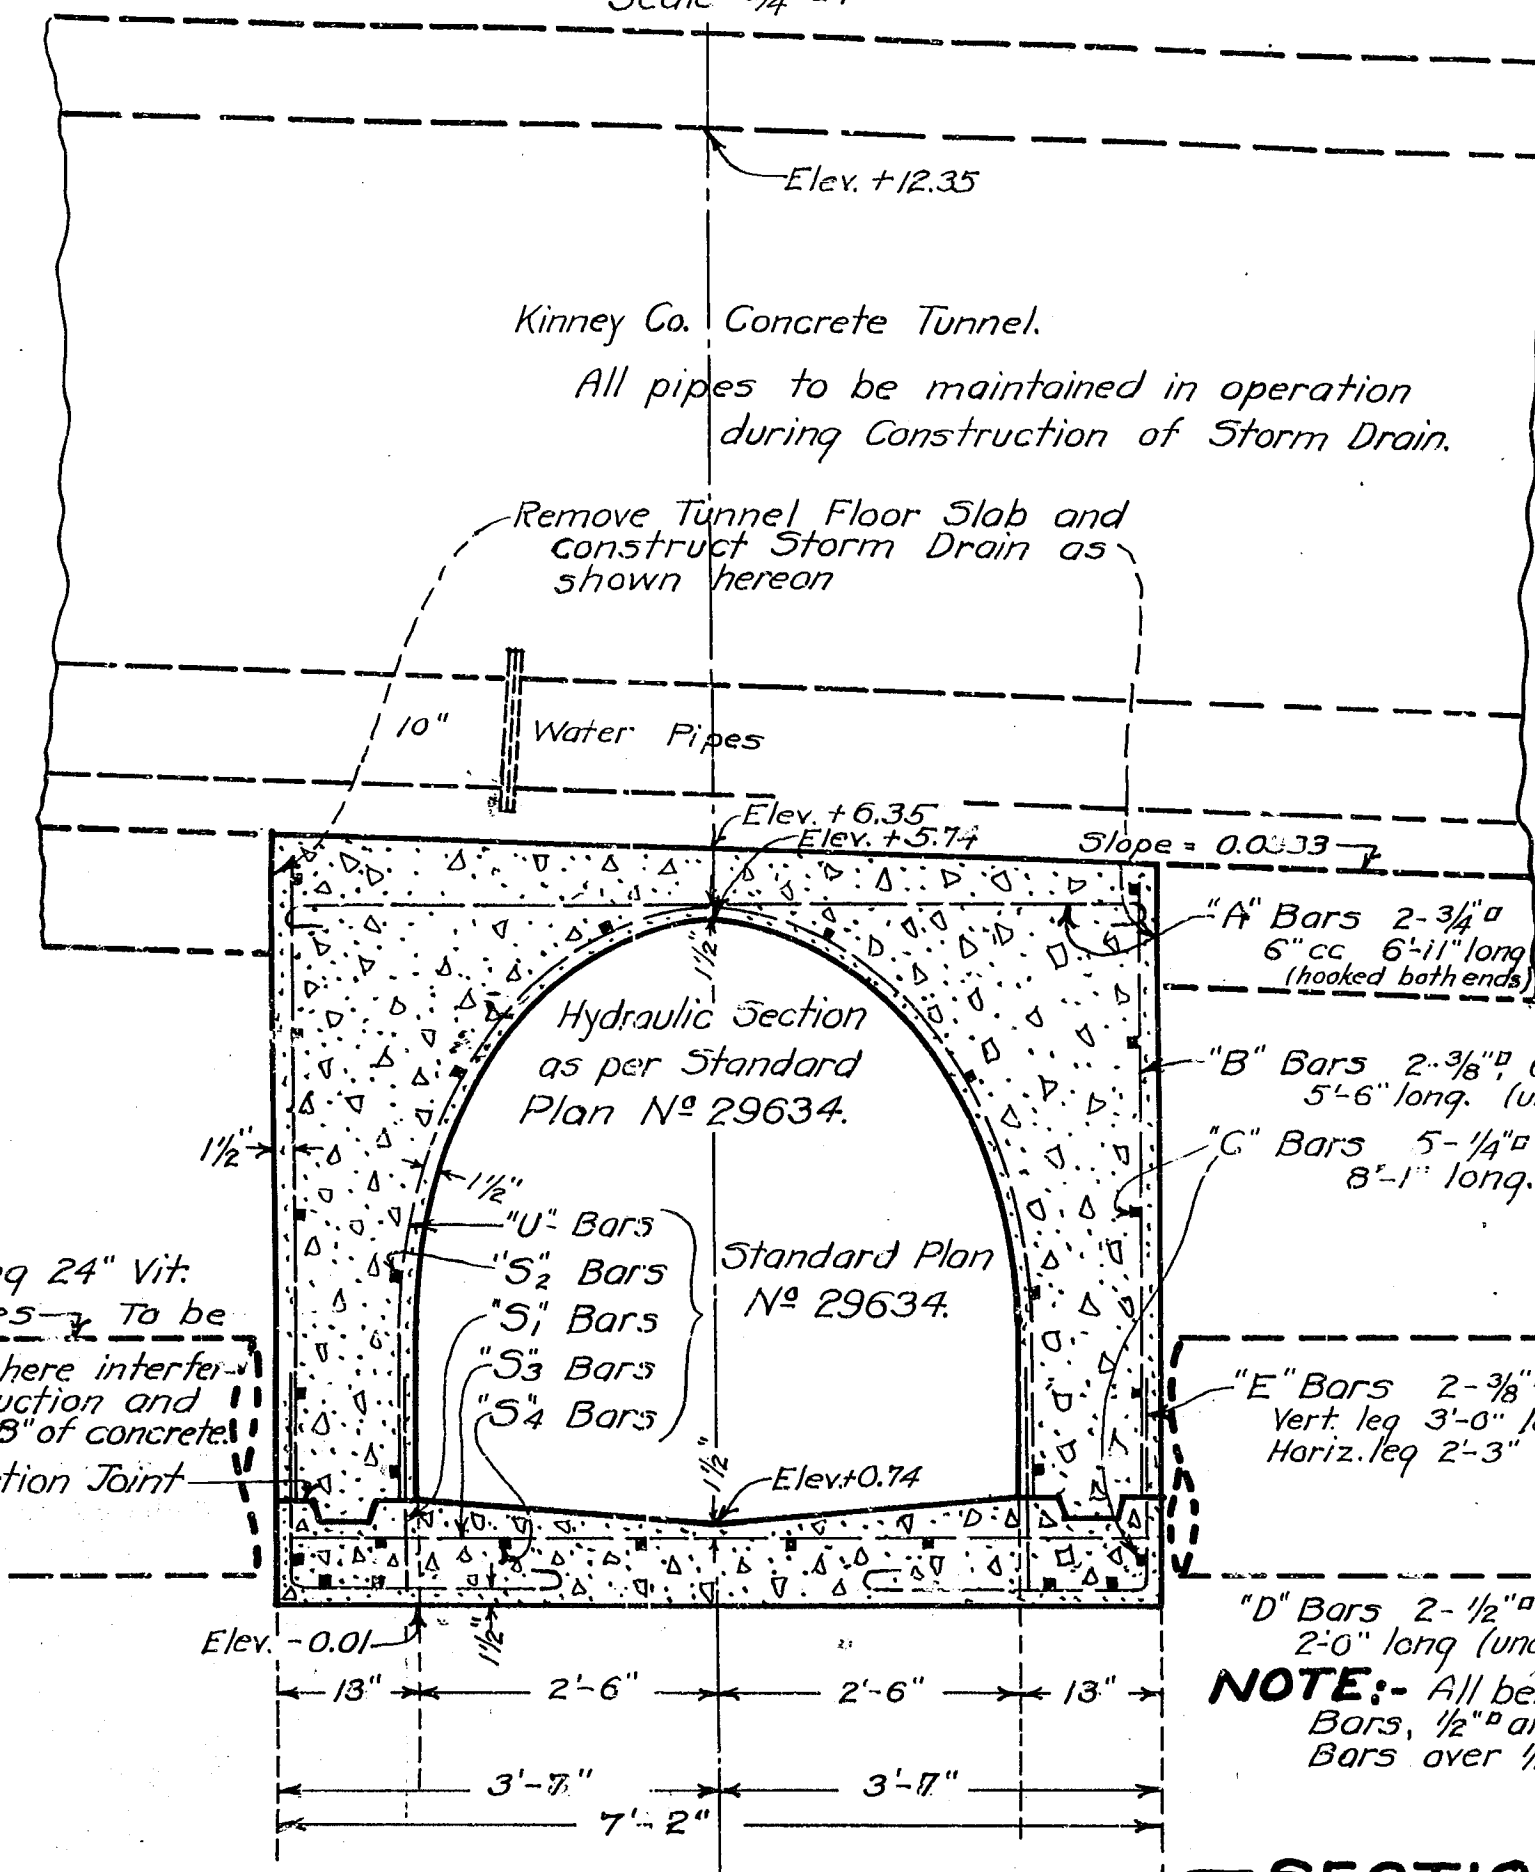 Scale
Elev. +12.35
Kinney Co. Concrete Tunnel.
All pipes to be maintained in operation
during Construction of Storm Drain.
Remove Tunnel Floor Slab and
construct Storm Drain as
shown hereon
10" Water Pipes
Elev. +6.35
Elev. +5.74
Slope =
"A" Bars 2-3/4"□
6"cc 6'-11" long
(hooked both ends)
1½"
Hydraulic Section
as per Standard
Plan Nº 29634.
"B" Bars 2-3/8"□,
5'-6" long.
"C" Bars 5-1/4"□
8'-1" long.
1½"
1½"
"U" Bars
"S2" Bars
"S1" Bars
"S3" Bars
"S4" Bars
Standard Plan
Nº 29634.
24" Vit.
To be
here interfer-
uction and
8" of concrete.
tion Joint
"E" Bars 2-3/8"
Vert. leg 3'-0"
Horiz. leg 2'-3"
1½"
Elev.+0.74
Elev. -0.01
1½"
"D" Bars 2-1/2"□
2'-0" long
NOTE:- All be
Bars, 1/2"□
Bars over
13" 2'-6" 2'-6" 13"
3'-7" 3'-7"
7'-2"
SECTIO